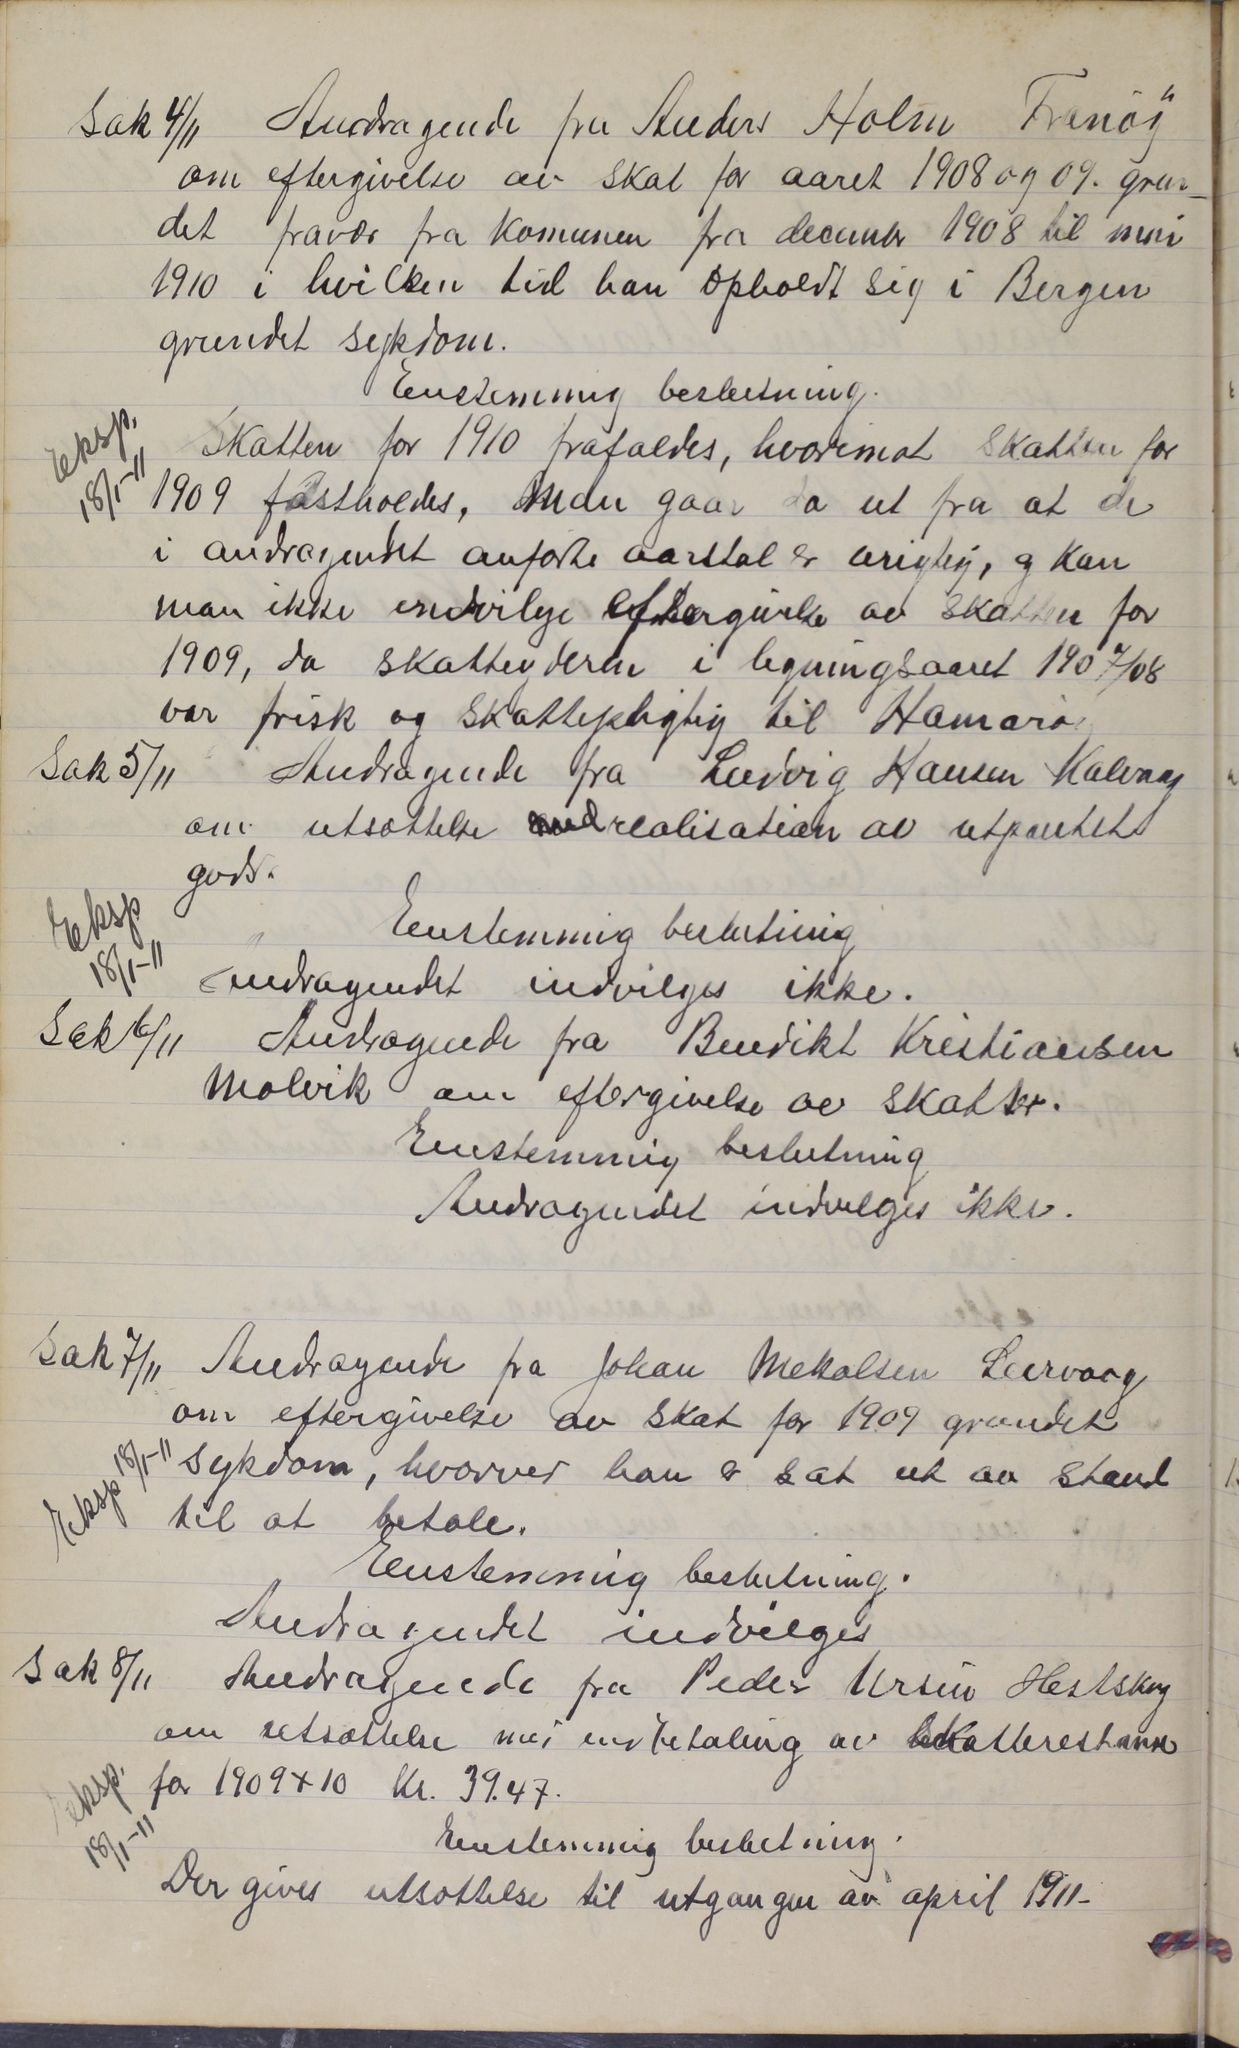 Sak 4/11 Andragende fra Anders Holm Tranöy
om eftergivelse av skat for aaret 1908 og 09. grun-
det fravær fra komunen fra decemer 1908 til mai
1910 i hvilken tid han opholdt sig i Bergen
grundet sykdom.
Enstemmig beslutning.
Eksp.
18/1-11
Skatten for 1910 frafaldes, hvorimot skatten for
1909 fastholdes, Man gaar da ut fra at de
i andragendet anførte aarstal er urigtig, og kan
man ikke indvilge eftergivelse av skatten for
1909, da skatteyderen i ligningsaaret 1907/08
var frisk og skattepligtig til Hamarø
Sak 5/11 Andragende fra Ludvig Hansen Kalvaag
om utsættelse med realisation av utpantet
gods.
Eksp
18/1-11
Enstemmig beslutning
Andragendet indvilges ikke.
Sak 6/11 Andragende fra Benedikt Kristiansen
Molvik om eftergivelse av skatter.
Enstemmig beslutning
Andragendet indvilges ikke.
Sak 7/11 Andragende fra Johan Mekalsen Leervaag
om eftergivelse av skat for 1909 grundet
Eksp 18/1-11
sykdom, hvorver han er sat ut av stand
til at betale.
Enstemmig beslutning.
Andragendet indvilges
Sak 8/11 Andragende fra Peder Ursin Hestskog
om utsættelse med indbetaling av skatterestanse
for 1909 + 10 Kr. 39.47.
Eksp.
18/1-11
Enstemmig beslutning.
Der gives utsættelse til utgangen av april 1911-